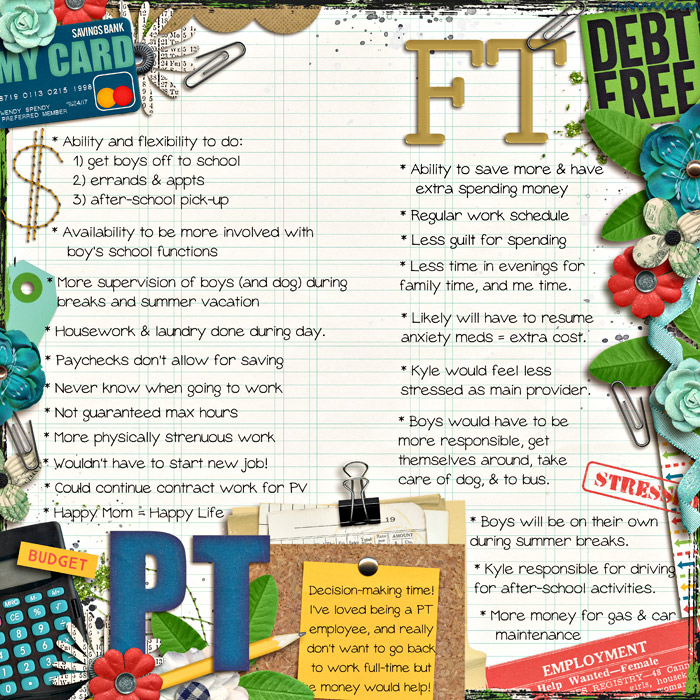 SAVINGS BANK
MY CARD
8719 0113 0215 1998
WENDY SPENDY
PREFERRED MEMBER
FT
DEBT
FREE
* Ability and flexibility to do:
1) get boys off to school
2) errands & appts
3) after-school pick-up
* Availability to be more involved with
boy's school functions
* More supervision of boys (and dog) during
breaks and summer vacation
* Housework & laundry done during day.
* Paychecks don't allow for saving
* Never know when going to work
* Not guaranteed max hours
* More physically strenuous work
* Wouldn't have to start new job!
* Could continue contract work for PV
* Happy Mom = Happy Life
* Ability to save more & have
extra spending money
* Regular work schedule
* Less guilt for spending
* Less time in evenings for
family time, and me time.
* Likely will have to resume
anxiety meds = extra cost.
* Kyle would feel less
stressed as main provider.
* Boys would have to be
more responsible, get
themselves around, take
care of dog, & to bus.
STRESS
* Boys will be on their own
during summer breaks.
* Kyle responsible for driving
for after-school activities.
* More money for gas & car
maintenance
19
AMOUNT
BUDGET
PT
Decision-making time!
I've loved being a PT
employee, and really
don't want to go back
to work full-time but
e money would help!
EMPLOYMENT
Help Wanted—Female